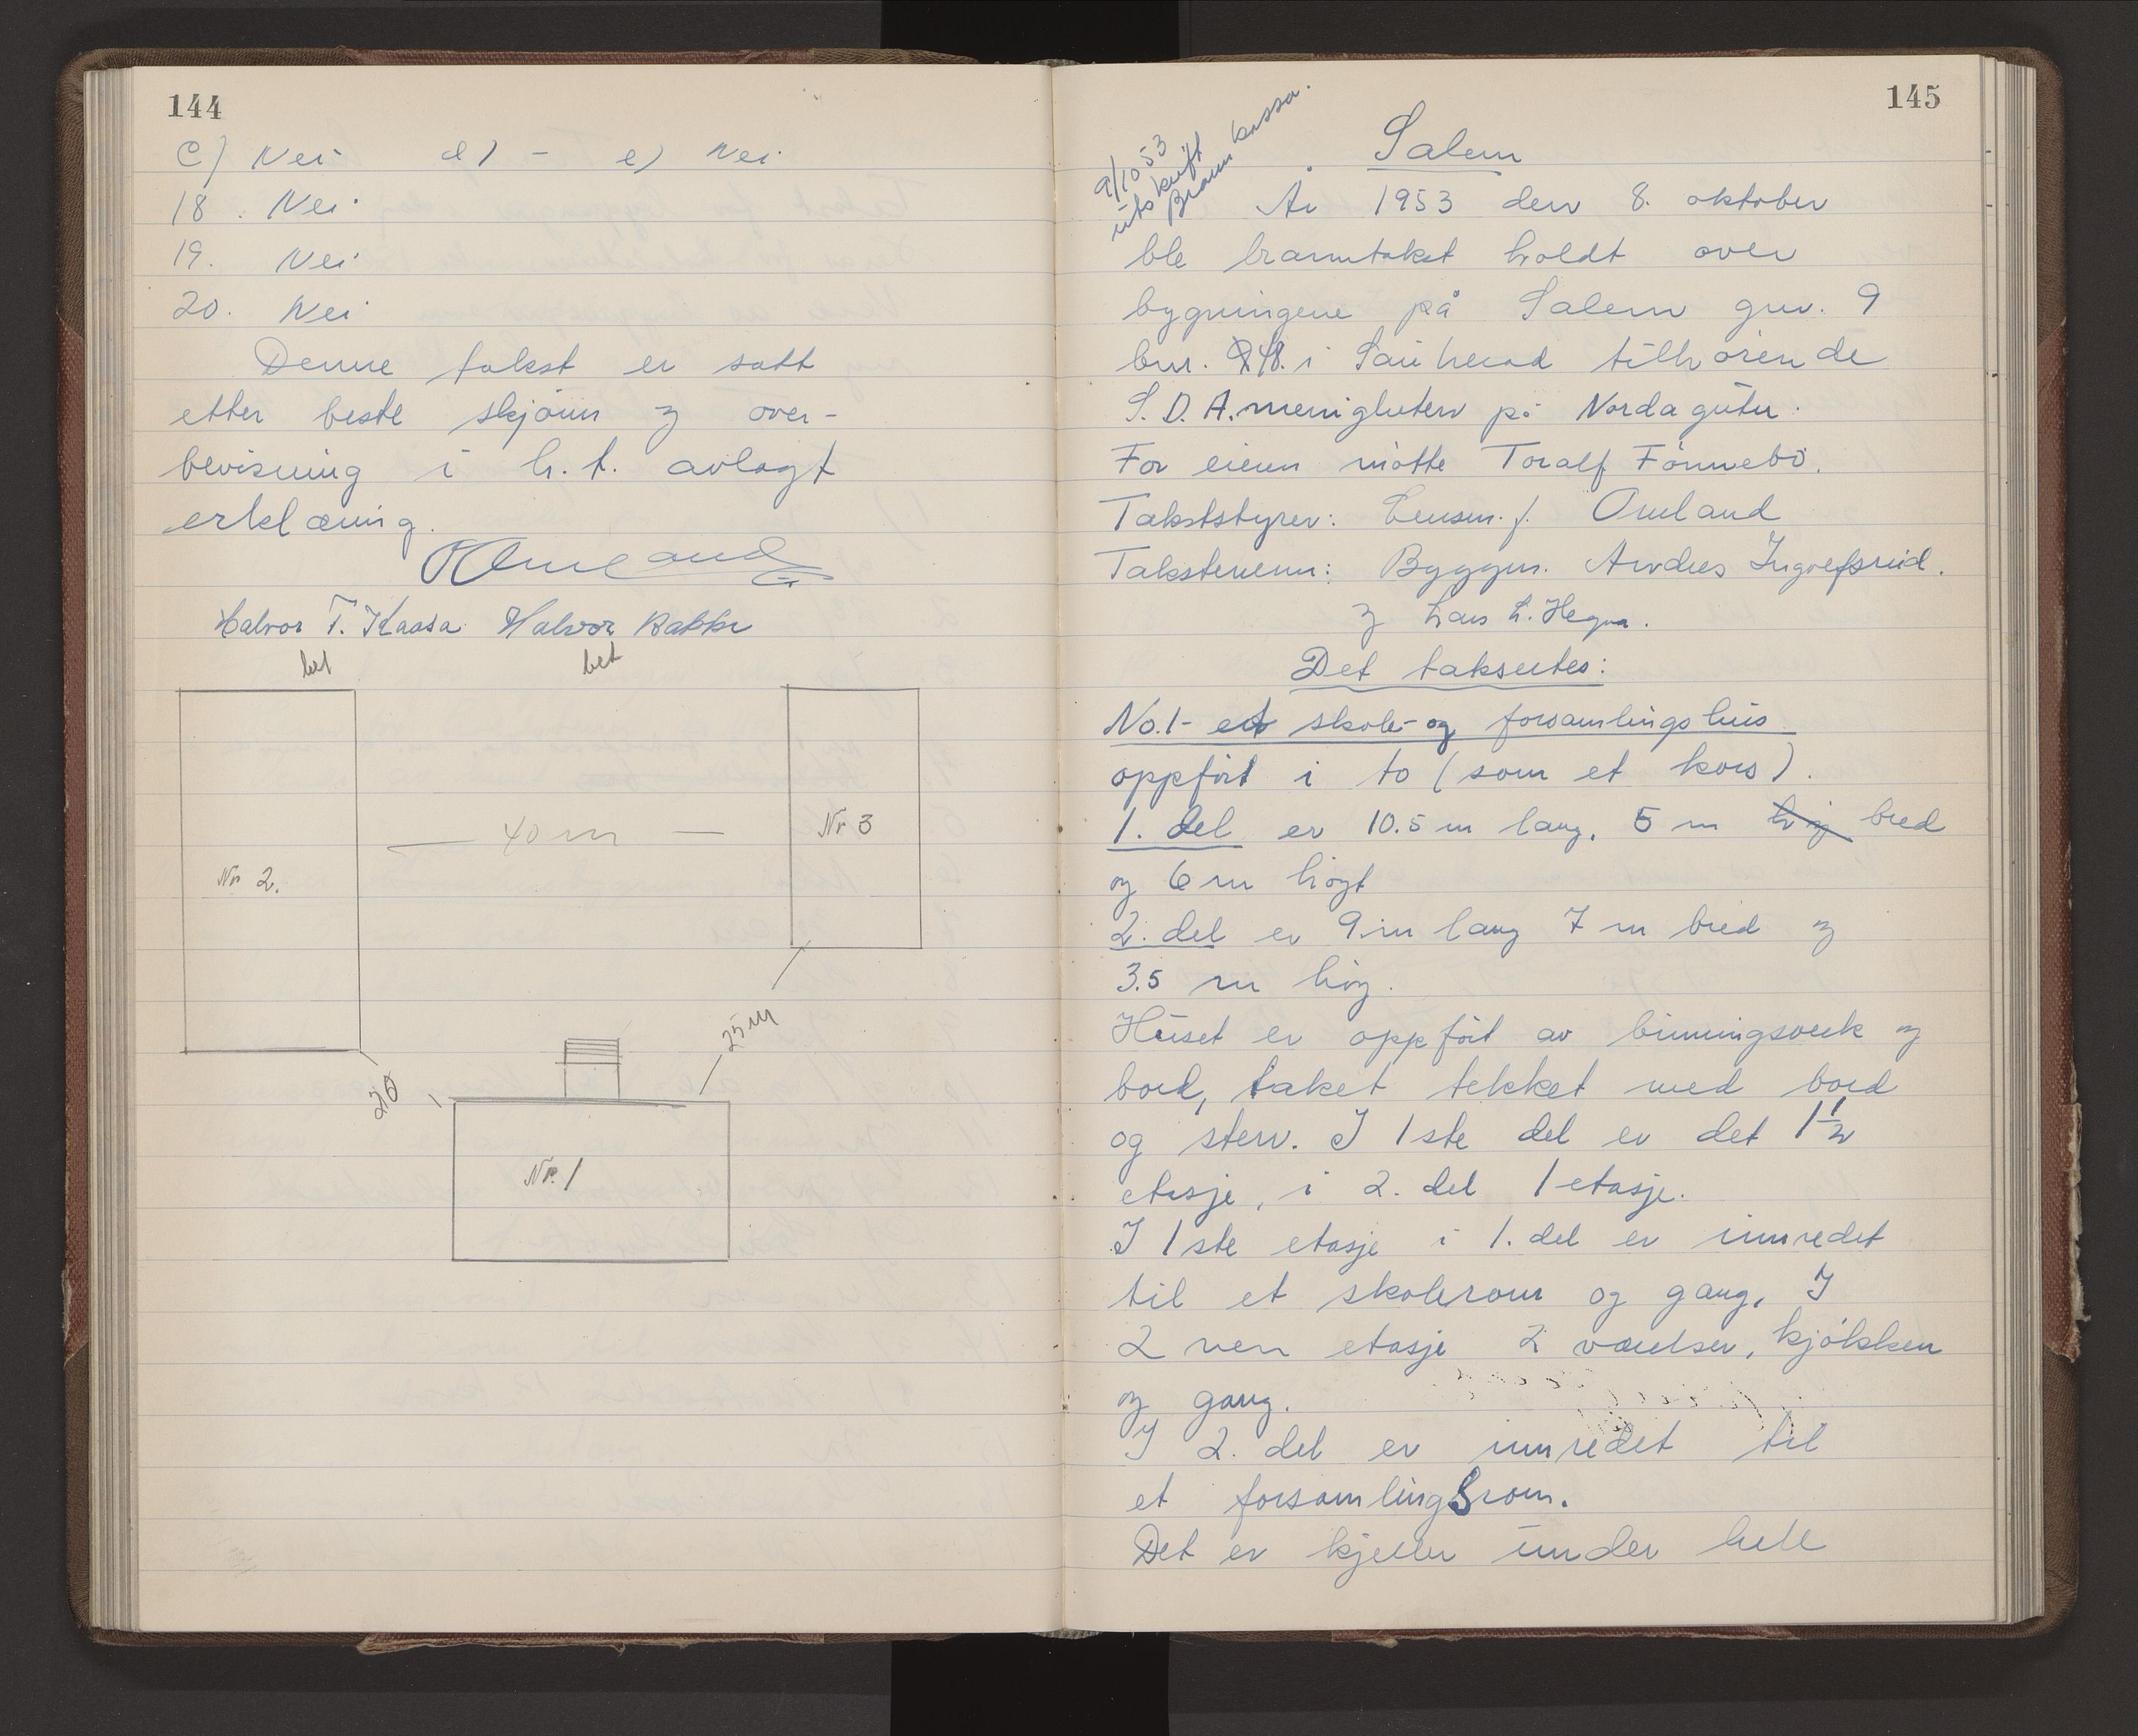 144
c) Nei d) - e) Nei
18. Nei
19. Nei
20. Nei
Denne takst er satt
etter beste skjønn og over-
bevisning i h.t. avlagt
erklæring.
Omland
Halvor T. Kaasa Halvor Bakke
bet bet
Nr 2.
40 m
Nr 3
20
25 m
Nr. 1
145
9/10 53
utskrift
Brannkassa.
Salem
År 1953 den 8. oktober
ble branntakst holdt over
bygningene på Salem gnr. 9
bnr. 48. i Sauherad tilhørende
S.D.A. menigheten på Nordagutu.
For eieren møtte Toralf Fönnebö.
Takststyrer: Lensm.f. Omland
Takstmenn: Byggm. Andres Ingolfsrud.
og Lars L. Hegna.
Det taksertes:
No. 1 - et skole- og forsamlingshus
oppført i to (som et kors).
1. del er 10.5 m lang, 5 m høy bred
og 6 m högt
2. del er 9 m lang 7 m bred og
3.5 m høy.
Huset er oppført av binningsverk og
bord, taket tekket med bord
og sten. I 1ste del er det 1½
etasje, i 2. del 1 etasje.
I 1ste etasje i 1. del er innredet
til et skolerom og gang. I
2nen etasje 2 værelser, kjøkken
og gang.
I 2. del er innredet til
et forsamlingsrom.
Det er kjeller under hele